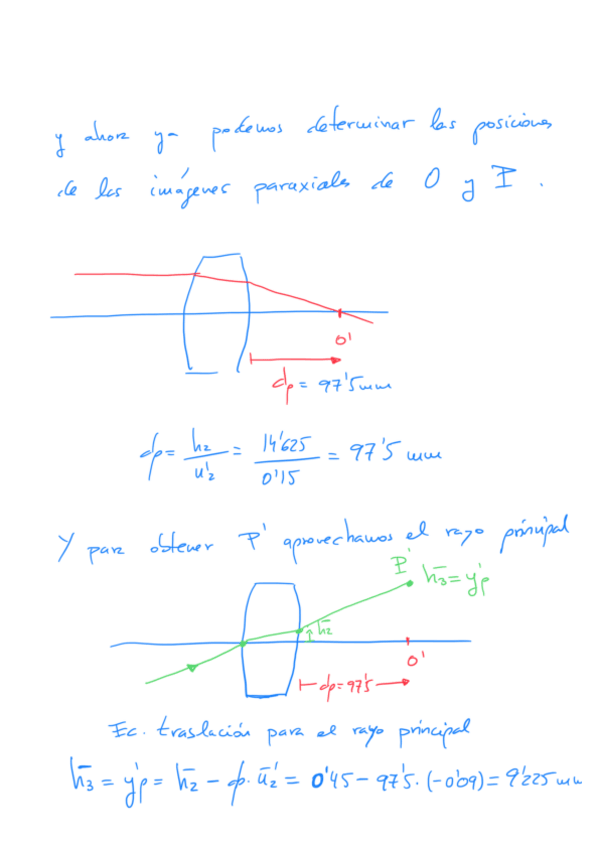 y ahora ya podemos determinar las posiciones
de las imágenes paraxiales de O y P.
O'
dp = 97'5mm
dp = h2 / u'2 = 14'625 / 0'15 = 97'5 mm
Y para obtener P' aprovechamos el rayo principal
P' h̄3 = y'p
h̄2
O'
dp = 97'5
Ec. traslación para el rayo principal
h̄3 = y'p = h̄2 - dp · ū'2 = 0'45 - 97'5 · (-0'09) = 9'225 mm